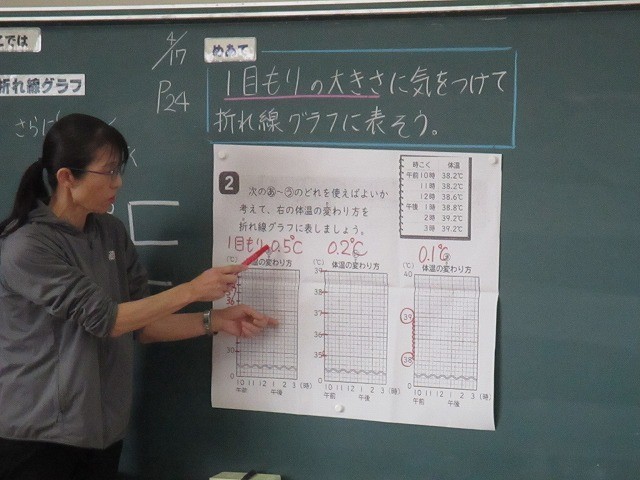 こでは
折れ線グラフ
さらに
4/17
P24
めあて
1目もりの大きさに気をつけて
折れ線グラフに表そう。
2
次のあ~うのどれを使えばよいか
考えて、右の体温の変わり方を
折れ線グラフに表しましょう。
時こく 体温
午前10時 38.2℃
11時 38.2℃
12時 38.6℃
午後 1時 38.8℃
2時 39.2℃
3時 39.2℃
1目もり 0.5℃ 0.2℃ 0.1℃
体温の変わり方
(℃) 体温の変わり方
(℃) 体温の変わり方
36
30
0
10 11 12 1 2 3 (時)
午前 午後
39
38
37
36
35
0
10 11 12 1 2 3 (時)
午前 午後
40
39
38
0
10 11 12 1 2 3 (時)
午前 午後